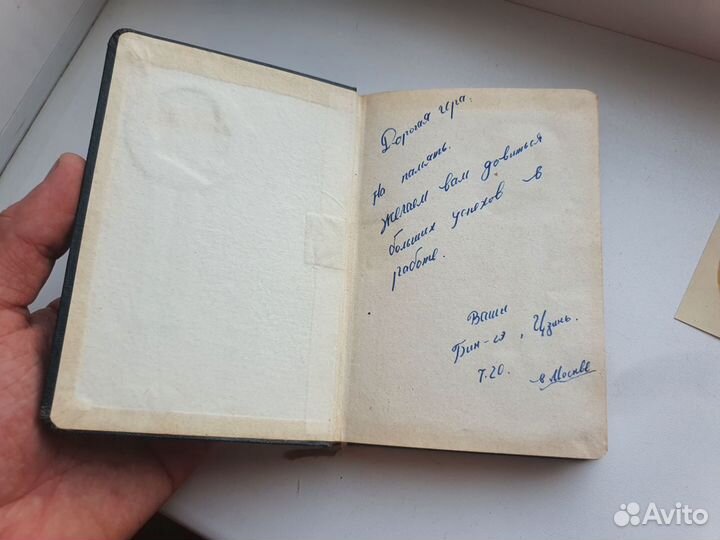 Дорогая гера.
На память.
Желаем вам довиться
больших успехов в
работе.
Ваши
Бин-сэ, Цзинь.
7.20. в Москве
Avito